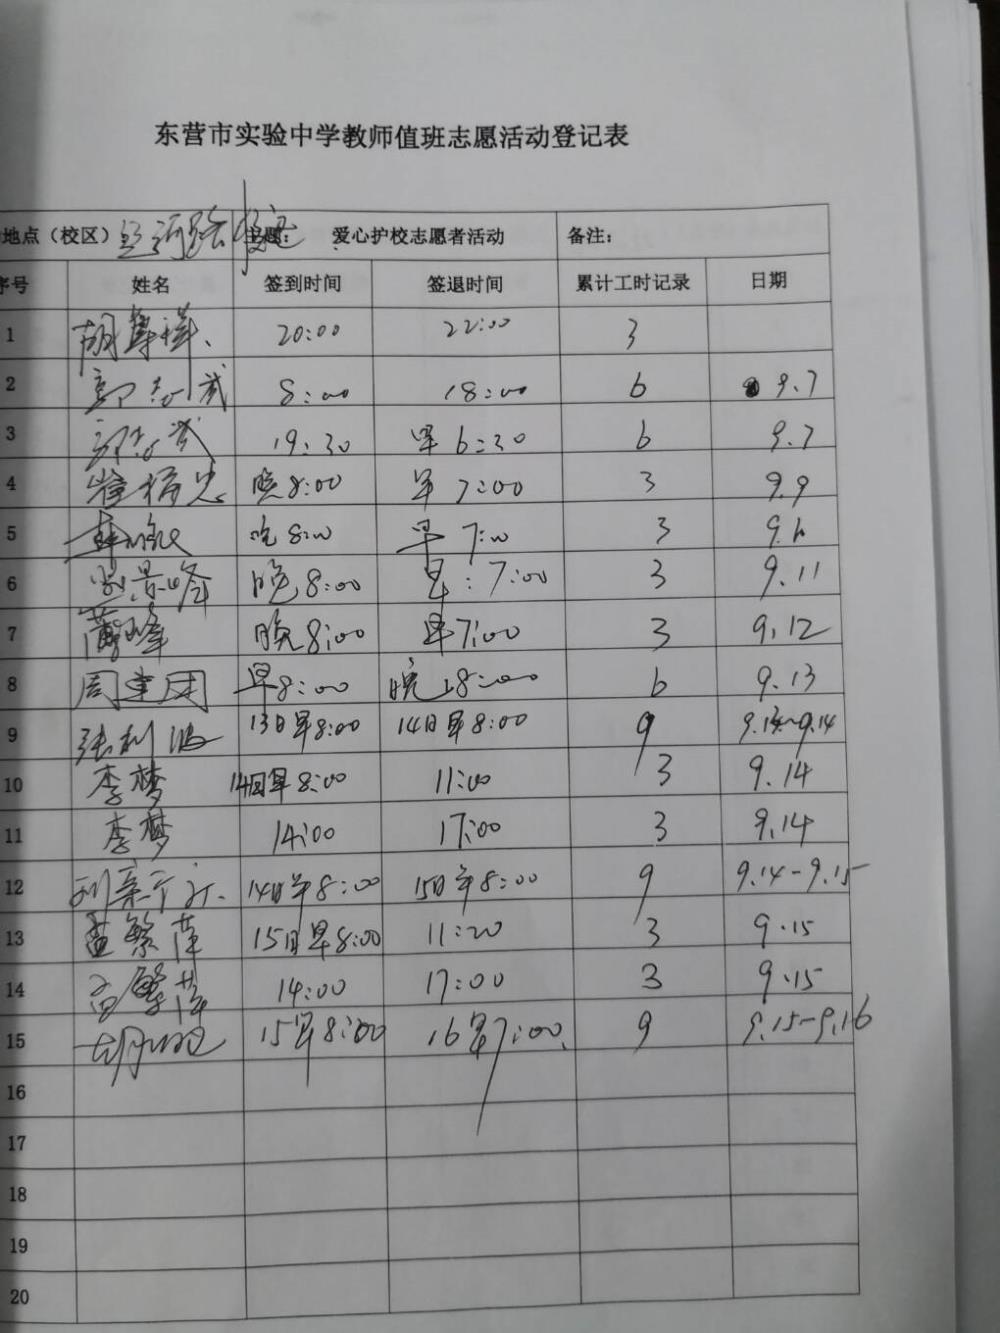 东营市实验中学教师值班志愿活动登记表
地点（校区） 主题： 爱心护校志愿者活动 备注：
序号 姓名 签到时间 签退时间 累计工时记录 日期
1 20:00 22:00 3
2 郭志武 8:00 18:00 6 9.7
3 郭志武 19:30 早6:30 6 9.7
4 晚8:00 早7:00 3 9.9
5 晚8:00 早7:00 3
6 晚8:00 早:7:00 3 9.11
7 晚8:00 早7:00 3 9.12
8 周建国 早8:00 晚18:00 6 9.13
9 张利波 13日早8:00 14日早8:00 9 9.13~9.14
10 李梦 14日早8:00 11:00 3 9.14
11 李梦 14:00 17:00 3 9.14
12 14日早8:00 15日早8:00 9 9.14-9.15
13 孟繁萍 15日早8:00 11:20 3 9.15
14 孟繁萍 14:00 17:00 3 9.15
15 15早8:00 16早7:00 9 9.15-9.16
16
17
18
19
20